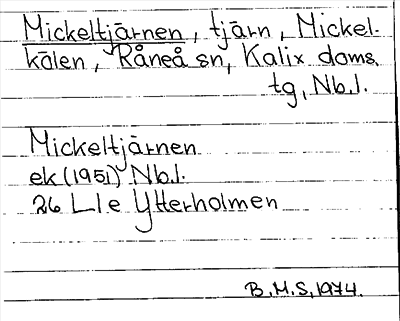 Mickeltjärnen, tjärn, Mickel-
kölen, Råneå sn, Kalix doms.
tg, Nb.l.
Mickeltjärnen
ek (1951) Nb.l.
26 L l e Ytterholmen
B.M.S, 1974.